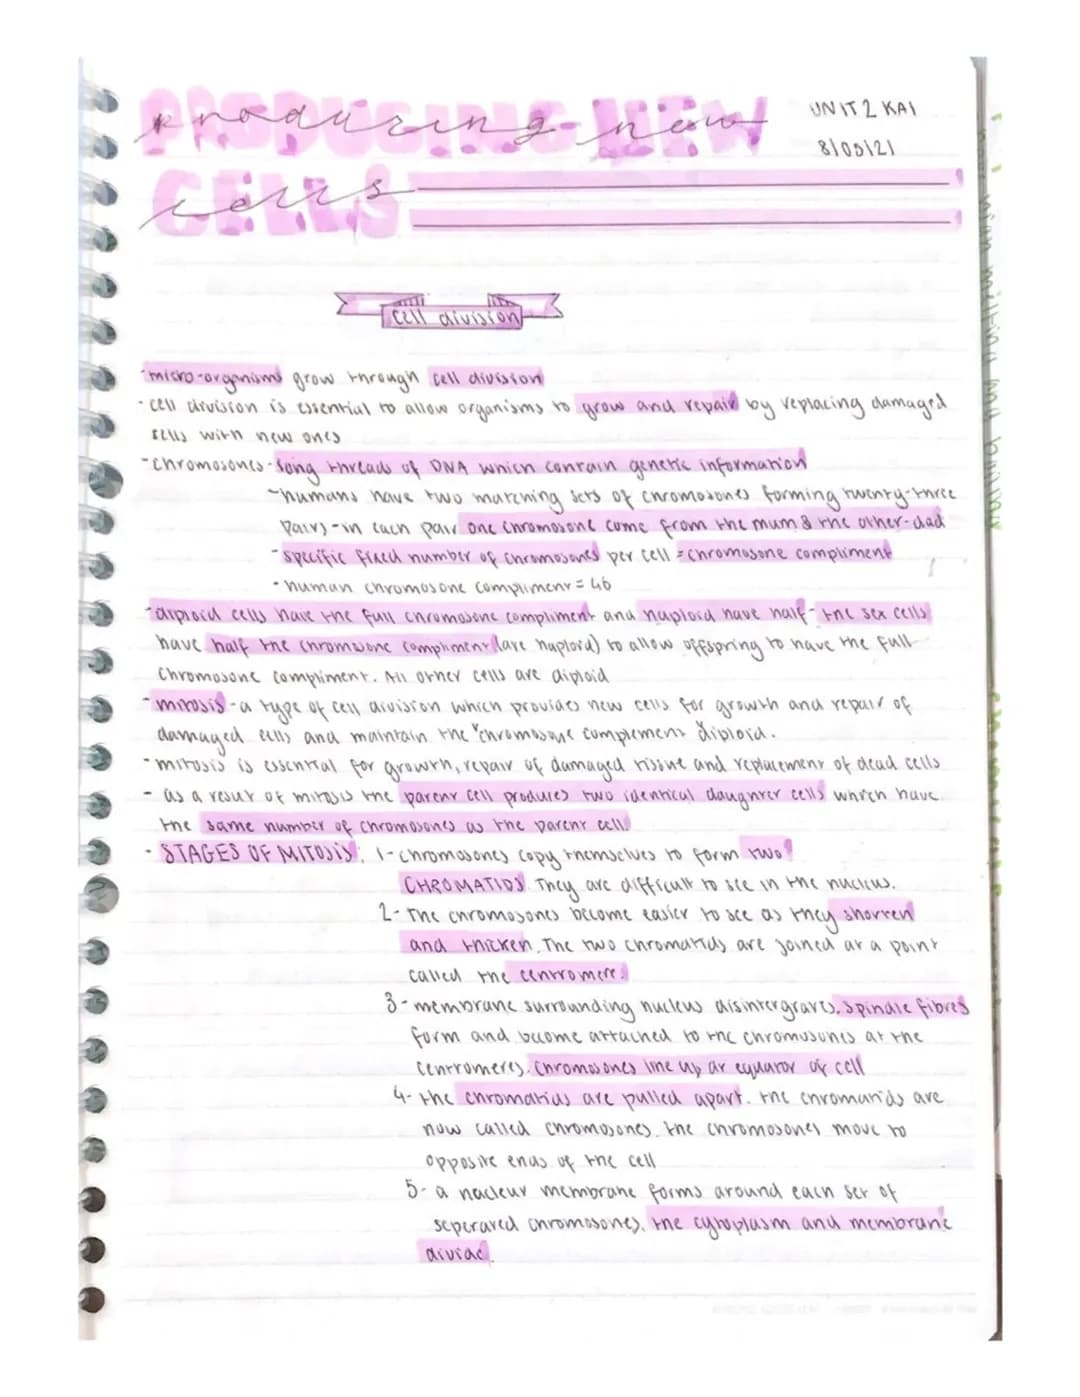 producing new
cells
UNIT 2 KA1
8/05/21
cell division
-micro-organisms grow through cell division
-cell division is essential to allow organisms to grow and repair by replacing damaged
cells with new ones
-chromosones-long threads of DNA which contain genetic information
-humans have two matching sets of chromosones forming twenty-three
pairs-in each pair one chromosone come from the mum & the other-dad
-specific fixed number of chromosones per cell = chromosone compliment
-human chromosone compliment = 46
-diploid cells have the full chromosone compliment and haploid have half-the sex cells
have half the chromosone compliment (are haploid) to allow offspring to have the full
chromosone compliment. All other cells are diploid
-mitosis-a type of cell division which provides new cells for growth and repair of
damaged cells and maintain the "chromosone complement diploid.
-mitosis is essential for growth, repair of damaged tissue and replacement of dead cells
- as a result of mitosis the parent cell produces two identical daughter cells which have
the same number of chromosones as the parent cell
- STAGES OF MITOSIS. 1-chromosones copy themselves to form two
CHROMATIDS. They are difficult to see in the nucleus.
2- The chromosones become easier to see as they shorten
and thicken. The two chromatids are joined at a point
called the centromere.
3-membrane surrounding nucleus disintergrates. Spindle fibres
form and become attached to the chromosones at the
centromeres. Chromosones line up at equator of cell
4- the chromatids are pulled apart. the chromatids are
now called chromosones. the chromosones move to
opposite ends of the cell
5- a nacleur membrane forms around each set of
seperated chromosones. the cytoplasm and membrane
divide.